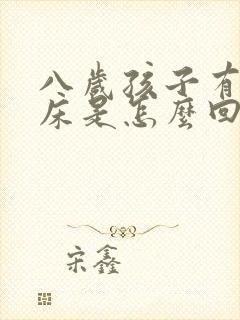 八歲孩子有
床是怎麼回
宋鑫